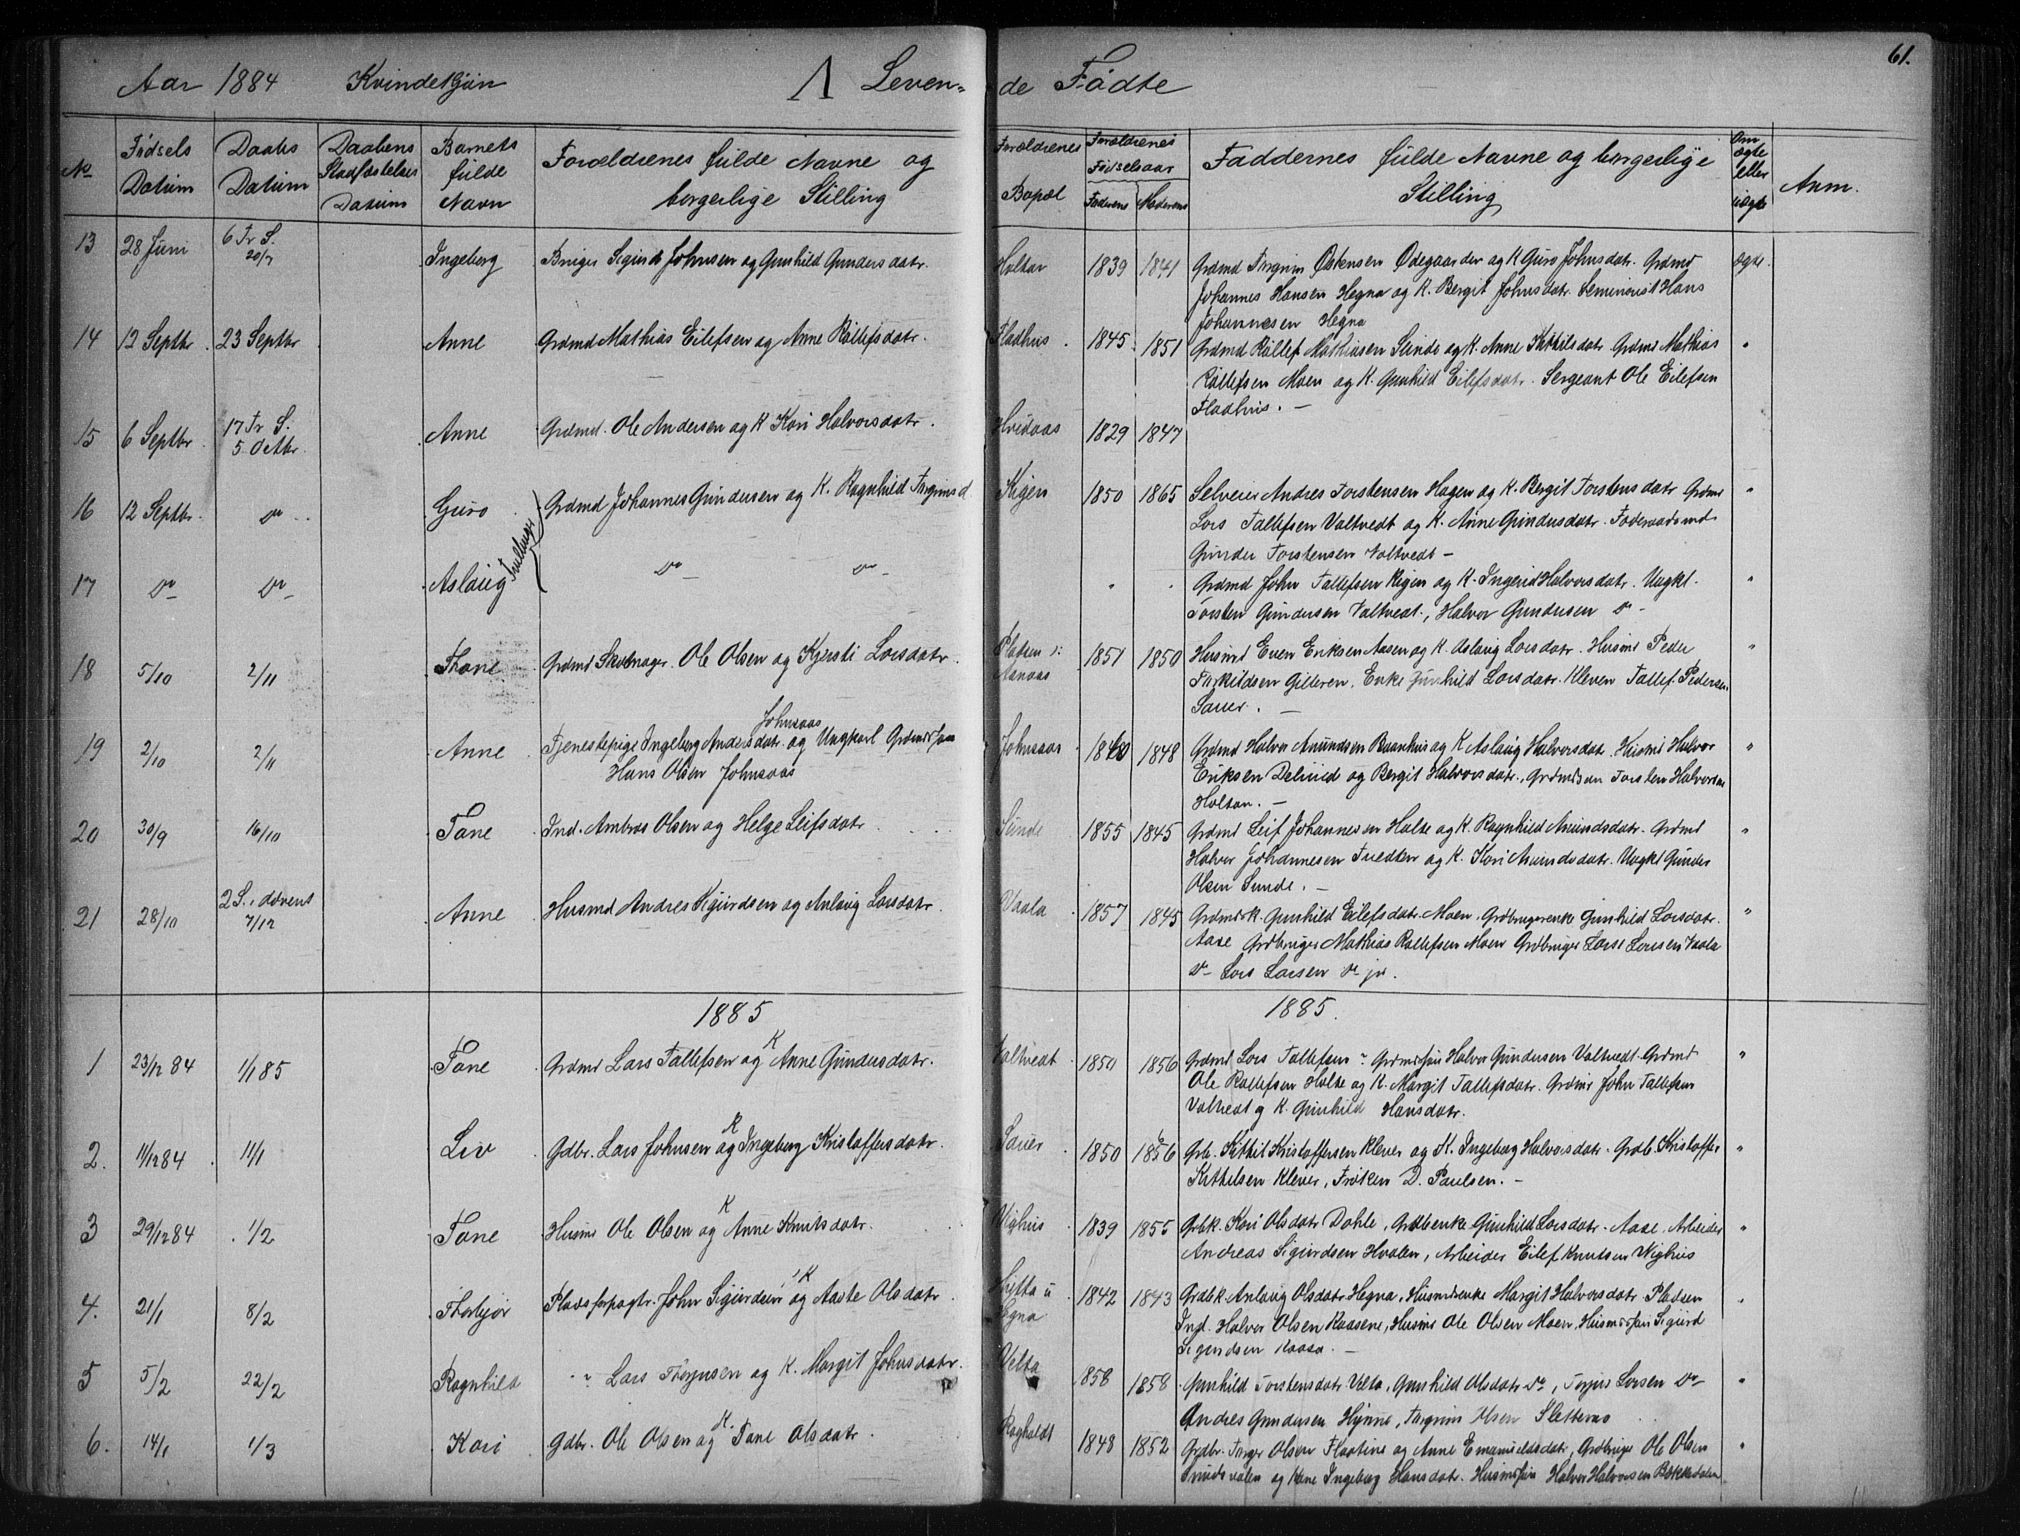 Aar 1884 Kvindekjøn Λ Leven-
de Fødte 61.
No Fødsels Datum Daabs Datum Daabens Stadfæstelses Datum Barnets fulde Navn Forældrenes fulde Navne og borgerlige Stilling
Forældrenes Bopæl Forældrenes Fødselsaar Faderens Moderens Faddernes fulde Navne og borgerlige Stilling Om ægte eller uægte Anm.
13 28 Juni 6 Tr S. 20/7 Ingeberg Sigurd Johnsen og Gunhild Gundersdatr. Holtar 1839 1841 Grdmd Torgrim Østensen Ødegaarden og K Guro Johnsdatr. Grdmd ægte.
Johannes Hansen Hegna og K. Bergit Johnsdatr. Seminarist Hans
Johannesen Hegna
14 12 Septbr. 23 Septbr Anne Grdmd Mathias Eilefsen og Anne Rollefsdatr. Fladhus 1845 1851 Grdmd Rollef Mathiasen Sunde og K. Anne Kittilsdatr. Grdmd Mathias "
Rollefsen Moen og K. Gunhild Eilefsdatr. Sergeant Ole Eilefsen
Fladhus. —
15 6 Septbr. 17 Tr S. 5 Octbr. Anne Grdmd. Ole Andersen og K Kari Halvorsdatr. Hvidaas 1829 1847
16 12 Septbr. Do Guro Grdmd Johannes Gundersen og K. Ragnhild Torgrimsd Kigen 1850 1865 Selveier Andres Torstensen Hagen og K. Bergit Torstensdatr Grdmd "
Lars Tallefsen Valtvedt og K. Anne Gundersdatr. Føderaadsmd
Gunder Torstensen Valtvedt —
Tvillinger
17 Do Do Aslaug Do Do " " Grdmd John Tallefsen Kigen og K. Ingerid Halvorsdatr. Ungkl. "
Torsten Gundersen Valtvedt., Halvor Gundersen Do
18 5/10 2/11 Thone Grdmd Skomager. Ole Olsen og Kjersti Larsdatr. Pladsen u: Aanaas 1851 1850 Husmd Even Eriksen Aasen og K. Aslaug Larsdatr. Husmd Peder "
Torkildsen Gilleren. Enke Gunhild Larsdatr. Kleven Tallef Pedersen
Sauer. —
19 2/10 2/11 Anne Tjenestepige Ingeberg Andersdatr. Johnsaas og Ungkarl Grdmdssøn Johnsaas 1860 1848 Grdmd Halvor Amundsen Buanhus og K Aslaug Halvorsdatr. Husmd Halvor "
Hans Olsen Johnsaas Eriksen Delmid og Bergit Halvorsdatr., Grdmdsøn Torsten Halvorsen
Holtan. —
20 30/9 16/10 Tone Ind. Ambros Olsen og Helge Leifsdatr Sunde 1855 1845 Grdmd Leif Johannesen Holte og K. Ragnhild Amundsdatr. Grdmd "
Halvor Johannesen Tvedten og K. Kari Amundsdatr. Ungkl Gunder
Olsen Sunde. —
21 28/10 2 S. i Advent 7/12 Anne Husmd Andres Sigurdsen og Anlaug Larsdatr. Vaala 1857 1845 Grdmdsk. Gunhild Eilefsdatr. Moen. Grdbrugerenke Gunhild Larsdatr. "
Aase Grdbruger Mathias Rollefsen Moen Grdbruger Larse Larsen Vaala
Do Lars Larsen Do jr.
1885 1885.
1 23/12 84 1/1 85 Tone Grdmd Lars Tallefsen og K Anne Gundersdatr. Valtvedt 1850 1856 Grdmd Lars Tallefsen " Grdmdsøn Halvor Gundersen Valtvedt. Grdmd "
Ole Rollefsen Holte og K. Margit Tallefsdatr. Grdmd John Tallefsen
Valtvedt og K. Gunhild Hansdatr.
2. 11/12 84 11/1 Liv Gdbr. Lars Johnsen og K Ingeberg Kristoffersdatr. Sauer 1850 1856 Grb. Kittil Kristoffersen Kleven og K. Ingeborg Halvorsdatr. Grdb. Kristoffer "
Kittilsen Kleven, Frøken D. Paulsen. —
3 29/12 84 1/2 Tone Husmd Ole Olsen og K Anne Knutsdatr. Vighus 1839 1855 Grbk. Kari Olsdatr Dahle, Grdbenke Gunhild Larsdatr. Aase. Arbeider "
Andreas Sigurdsen Hvalen, Arbeider Eilef Knutsen Wighus
4. 21/1 8/2 Thorbjør Pladsforpagtr. John Sigurdsen og K Aaste Olsdatr. Hytta u Hegna 1842 1843 Grdbk Anlaug Olsdatr Hegna, Husmdsenke Margit Halvorsdatr. Pladsen "
Ind. Halvor Olsen Raasene, Husmd Ole Olsen Moen, Husmdssøn Sigurd
Sigurdsen Raasa. —
5 5/2 22/2 Ragnhild " Lars Thorjusen og K. Margit Johnsdatr. Velta 1858 1858 Gunhild Torstensdatr Velta, Gunhild Olsdatr Do, Torjus Larsen Do "
Andres Gundersen Hynne, Torgrim Olsen
6. 14/1 1/3 Kari Gdbr. Ole Olsen og K. Tone Olsdatr. Ragholdt 1848 1852 Grdbr. Torger Olsen Flaatine og Anne Emanuelsdatr, Grdbruger Ole Olsen "
og Kone Ingeborg Hansdatr. Husmdsøn Halvor Halvorsen Bekkedalen